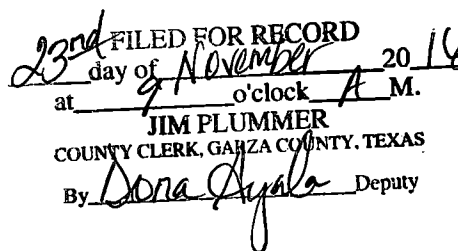 FILED FOR RECORD
23rd day of November 2016
at 9 o'clock A M.
JIM PLUMMER
COUNTY CLERK, GARZA COUNTY, TEXAS
By Dona Ayala Deputy